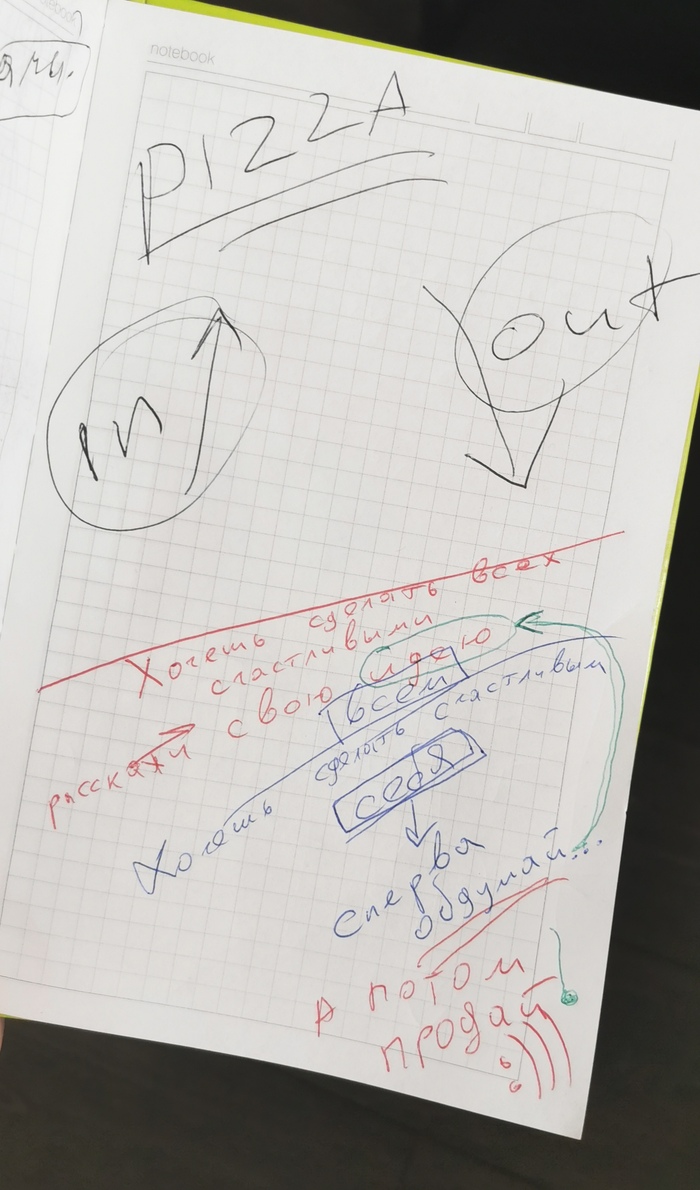 notebook
PIZZA
in
out
Хочешь сделать всех
счастливыми
расскажи свою идею
всем
Хочешь сделать счастливым
себя
сперва
обдумай...
А потом
продай